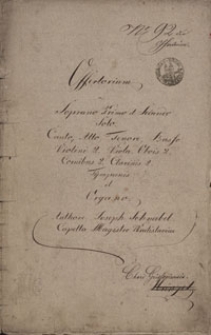 No 92
Offertorium
Soprano Primo
Solo.
Canto, Alto Tenore, Basso
Violini 2. Viola, Oboi 2.
Cornibus 2. Clarinis 2.
Tympanis
et
Organo.
Authore Joseph Schnabel
Capella Magister